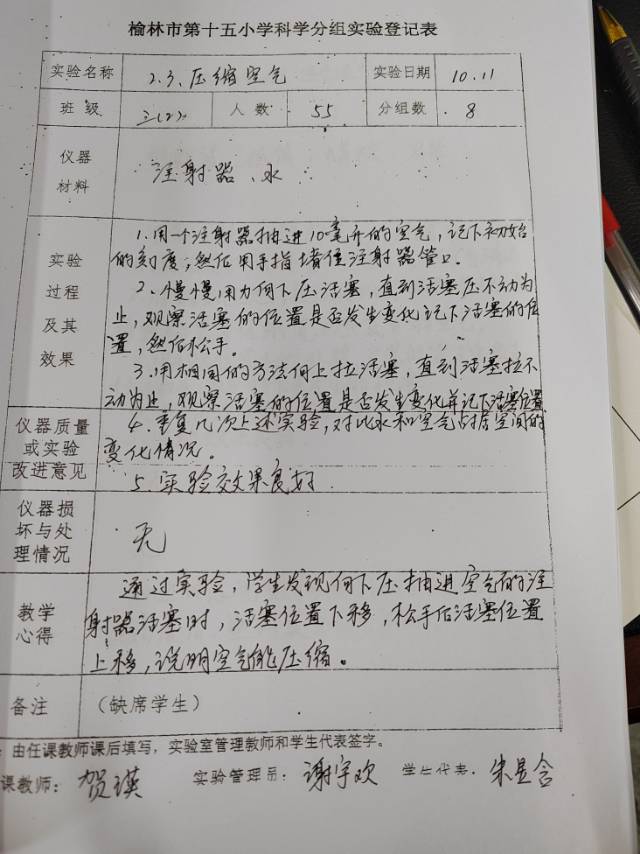 榆林市第十五小学科学分组实验登记表
实验名称 2.3.压缩空气 实验日期 10.11
班级 三(2) 人数 55 分组数 8
仪器材料 注射器、水
实验过程及其效果
1.用一个注射器抽进10毫升的空气,记下初始
的刻度;然后用手指堵住注射器管口。
2.慢慢用力向下压活塞,直到活塞压不动为
止,观察活塞的位置是否发生变化记下活塞的位
置,然后松手。
3.用相同的方法向上拉活塞,直到活塞拉不
动为止,观察活塞的位置是否发生变化并记下活塞位置
仪器质量或实验改进意见
4.重复几次上述实验,对比水和空气占据空间的
变化情况。
5.实验效果良好
仪器损坏与处理情况 无
教学心得
通过实验,学生发现向下压抽进空气的注
射器活塞时,活塞位置下移,松手后活塞位置
上移,说明空气能压缩。
备注 (缺席学生)
:由任课教师课后填写,实验室管理教师和学生代表签字。
课教师: 贺瑛 实验管理员: 谢宇欢 学生代表: